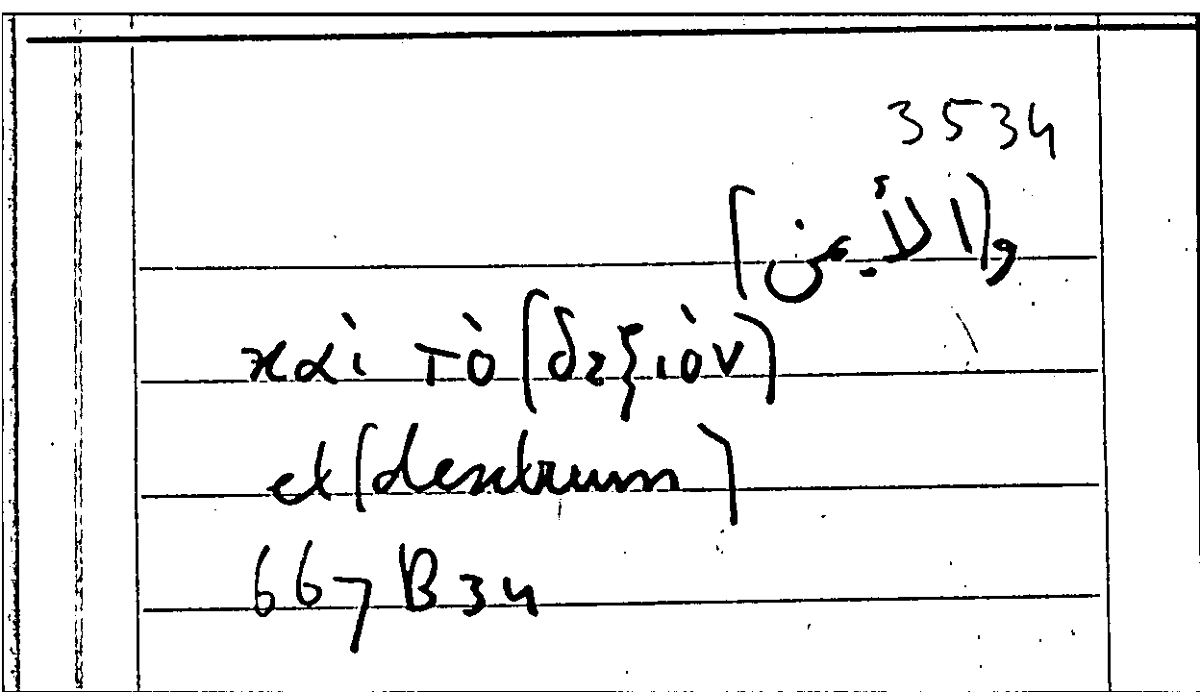 3534
و(الأيمن)
καὶ τὸ (δεξιὸν)
et (dextrum)
667 B 34